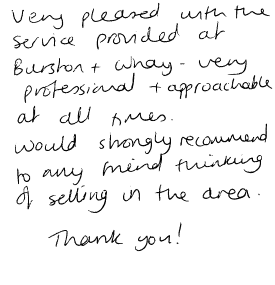 Very pleased with the
service provided at
Burston + Whay - very
professional + approachable
at all times.
Would strongly recommend
to any friend thinking
of selling in the area.
Thank you!